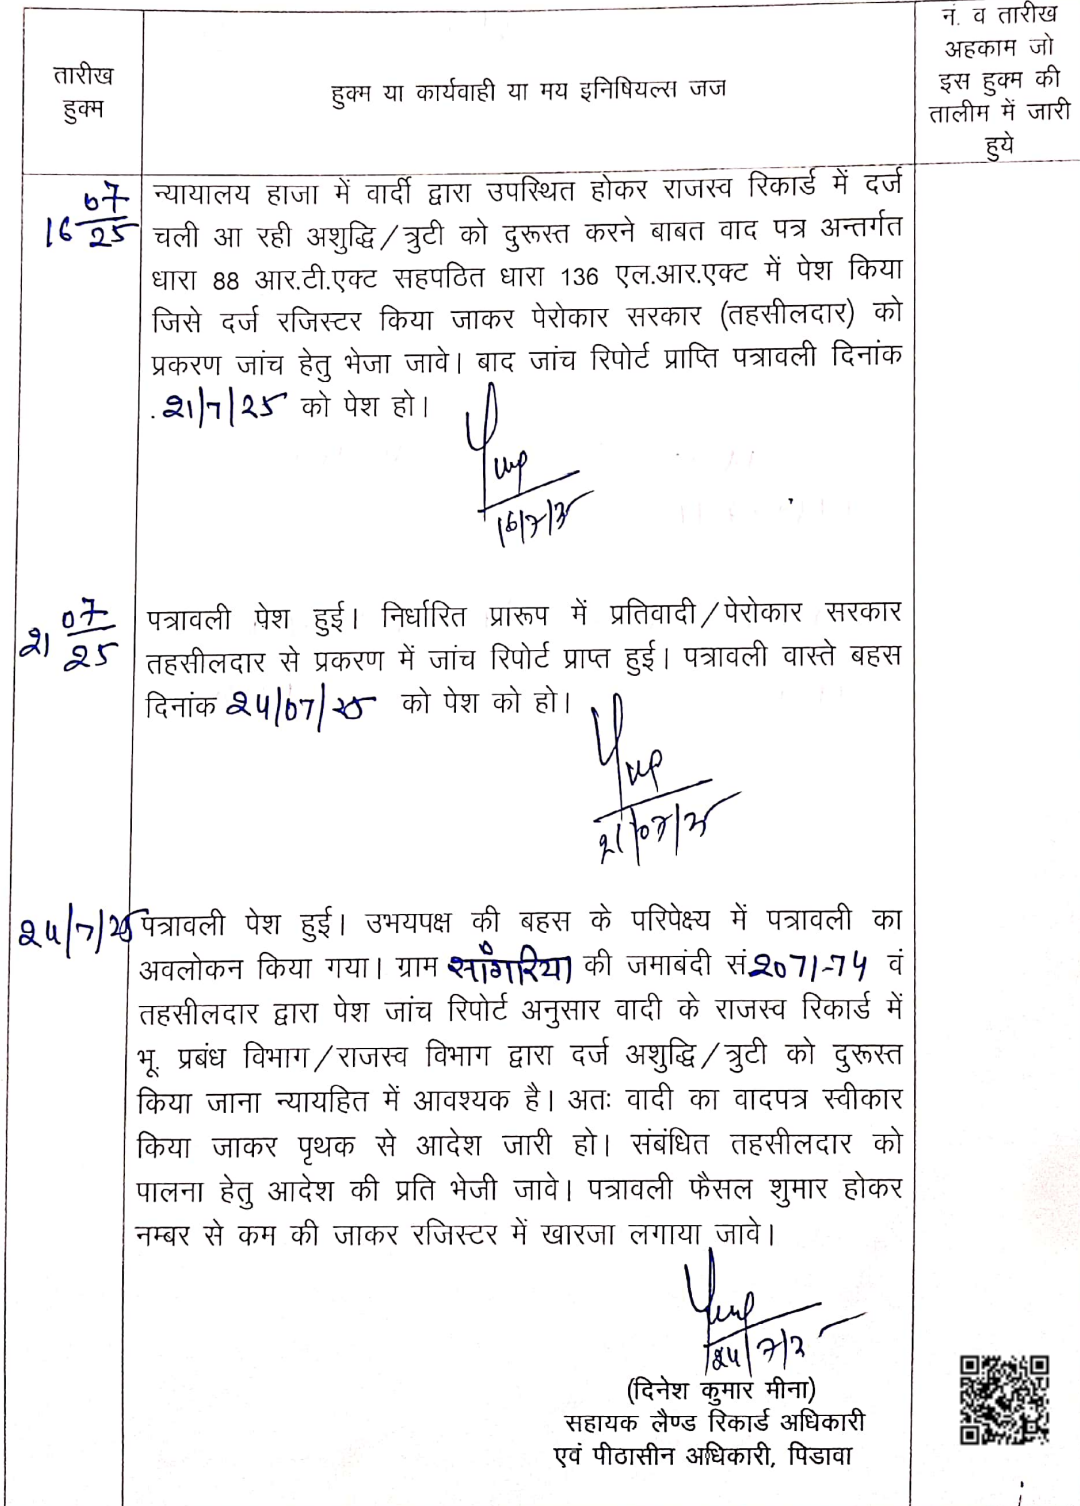 तारीख
हुक्म
हुक्म या कार्यवाही या मय इनिषियल्स जज
नं. व तारीख
अहकाम जो
इस हुक्म की
तालीम में जारी
हुये
16 07/25
न्यायालय हाजा में वार्दी द्वारा उपस्थित होकर राजस्व रिकार्ड में दर्ज
चली आ रही अशुद्धि/त्रुटी को दुरूस्त करने बाबत वाद पत्र अन्तर्गत
धारा 88 आर.टी.एक्ट सहपठित धारा 136 एल.आर.एक्ट में पेश किया
जिसे दर्ज रजिस्टर किया जाकर पेरोकार सरकार (तहसीलदार) को
प्रकरण जांच हेतु भेजा जावे। बाद जांच रिपोर्ट प्राप्ति पत्रावली दिनांक
.21/7/25 को पेश हो।
16/7/25
21 07/25
पत्रावली पेश हुई। निर्धारित प्रारूप में प्रतिवादी/पेरोकार सरकार
तहसीलदार से प्रकरण में जांच रिपोर्ट प्राप्त हुई। पत्रावली वास्ते बहस
दिनांक 24/07/25 को पेश को हो।
21/07/25
24/7/25
पत्रावली पेश हुई। उभयपक्ष की बहस के परिपेक्ष्य में पत्रावली का
अवलोकन किया गया। ग्राम की जमाबंदी सं 2071-74 वं
तहसीलदार द्वारा पेश जांच रिपोर्ट अनुसार वादी के राजस्व रिकार्ड में
भू. प्रबंध विभाग/राजस्व विभाग द्वारा दर्ज अशुद्धि/त्रुटी को दुरूस्त
किया जाना न्यायहित में आवश्यक है। अतः वादी का वादपत्र स्वीकार
किया जाकर पृथक से आदेश जारी हो। संबंधित तहसीलदार को
पालना हेतु आदेश की प्रति भेजी जावे। पत्रावली फैसल शुमार होकर
नम्बर से कम की जाकर रजिस्टर में खारजा लगाया जावे।
24/7/25
(दिनेश कुमार मीना)
सहायक लैण्ड रिकार्ड अधिकारी
एवं पीठासीन अधिकारी, पिडावा